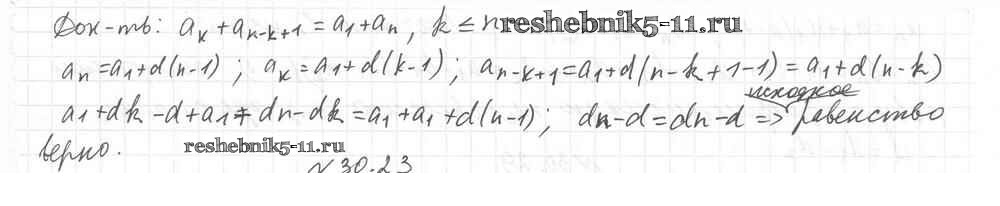 Док-ть: aₖ + aₙ₋ₖ₊₁ = a₁ + aₙ, k ≤ n reshebnik5-11.ru
aₙ = a₁ + d(n-1) ; aₖ = a₁ + d(k-1) ; aₙ₋ₖ₊₁ = a₁ + d(n-k+1-1) = a₁ + d(n-k)
исходное
a₁ + dk - d + a₁ + dn - dk = a₁ + a₁ + d(n-1) ; dn - d = dn - d => равенство
верно. reshebnik5-11.ru
№30.23